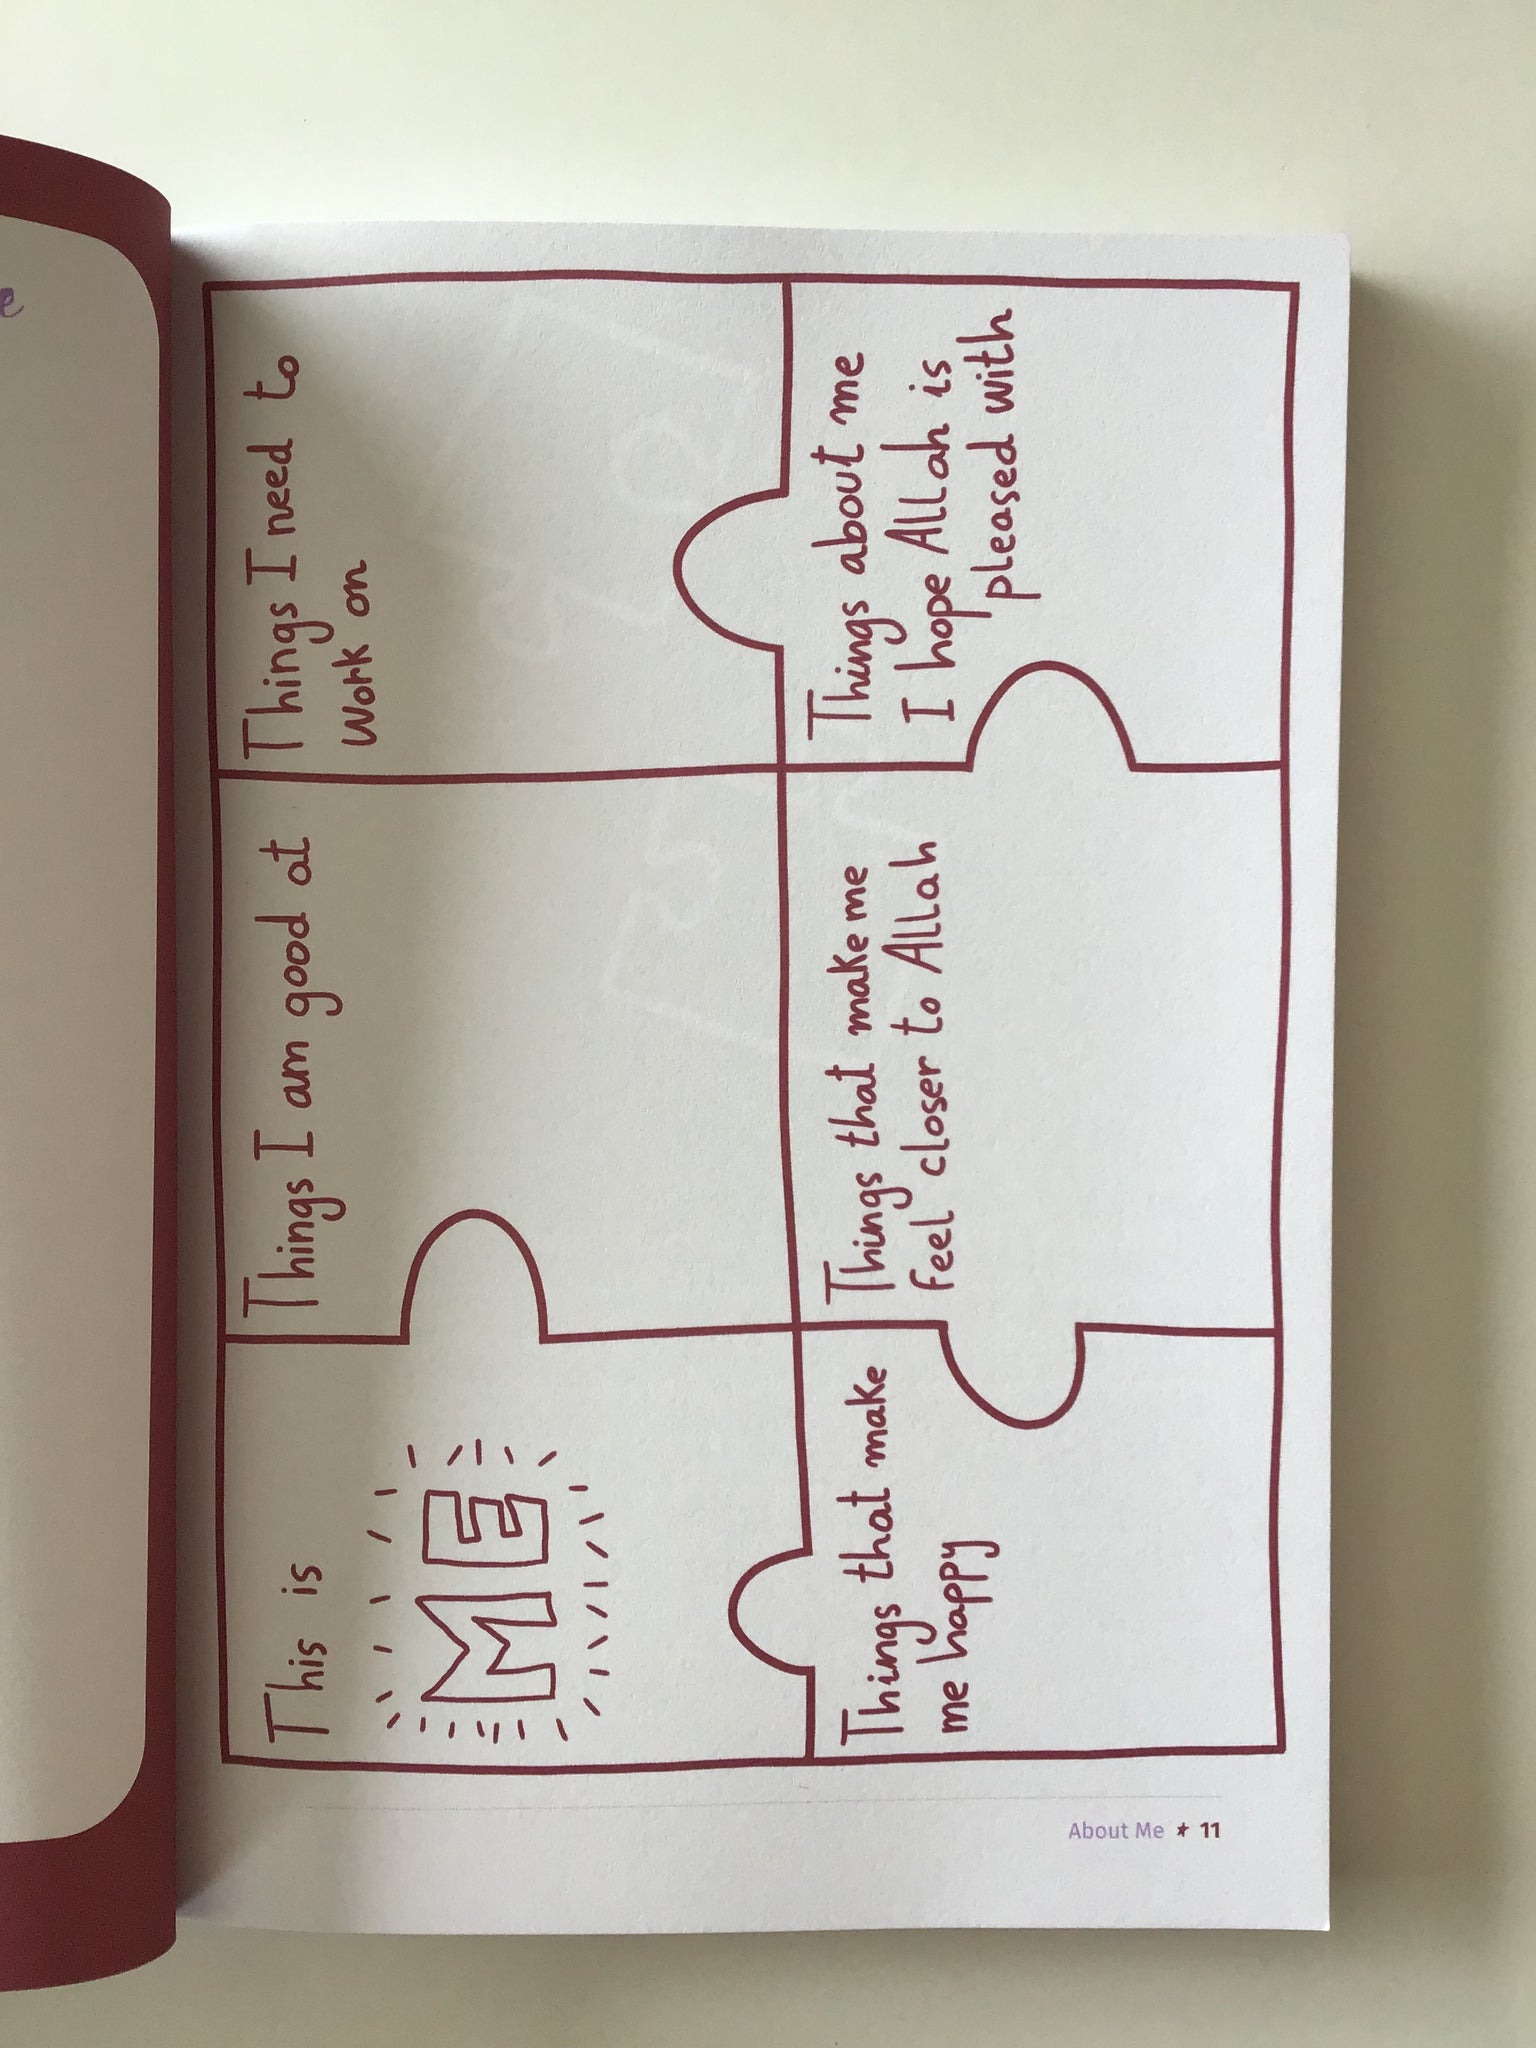 This is
ME
Things I am good at
Things I need to
work on
Things that make
me happy
Things that make me
feel closer to Allah
Things about me
I hope Allah is
pleased with
About Me ★ 11